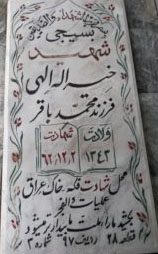 بسیجی
شهید
خیراله الهی
فرزند محمد باقر
ولادت شهادت
۱۳۴۳ ۶۲،۱۲،۲
محل شهادت قله خاک عراق
عملیات والفجر
قطعه ۲۸ ردیف ۹۷ شماره ۳